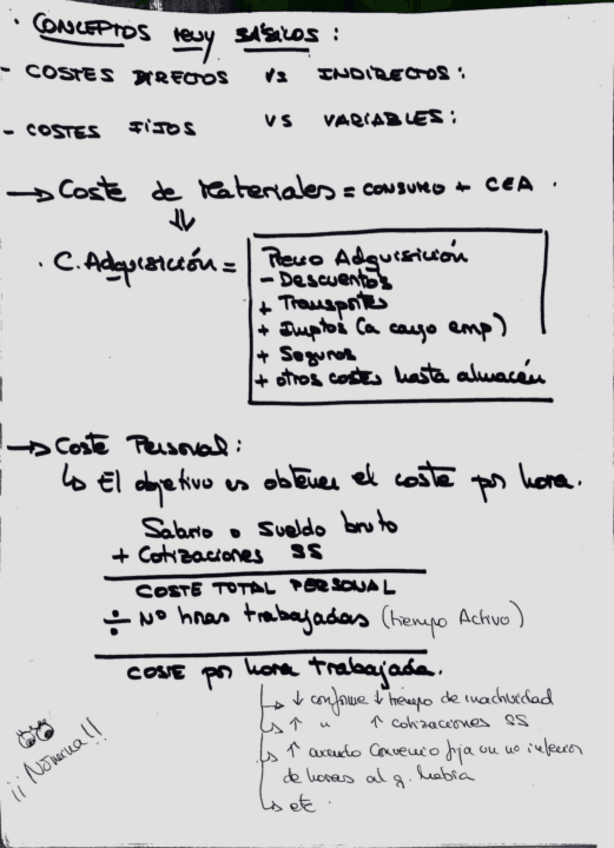 · CONCEPTOS MUY BÁSICOS :
- COSTES DIRECTOS VS INDIRECTOS :
- COSTES FIJOS VS VARIABLES :
→ Coste de Materiales = CONSUMO + CEA .
⇓
· C. Adquisición =
Precio Adquisición
- Descuentos
+ Transportes
+ Imptos (a cargo emp)
+ Seguros
+ otros costes hasta almacén
→ Coste Personal :
↳ El objetivo es obtener el coste por hora.
Salario o Sueldo bruto
+ Cotizaciones SS
COSTE TOTAL PERSONAL
÷ Nº horas trabajadas (tiempo Activo)
COSTE por hora trabajada.
↳ ↓ conforme ↓ tiempo de inactividad
↳ ↑ " ↑ cotizaciones SS
↳ ↑ cuando Convenio fija un nº inferior
de horas al q. había
↳ etc .
¡¡ Nómina !!